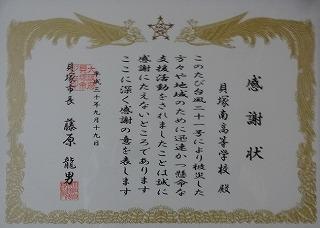 感謝状
貝塚南高等学校 殿
このたび台風二十一号により被災した
方々や地域のために迅速かつ懸命な
支援活動をされましたことは誠に
感謝にたえないところであります
ここに深く感謝の意を表します
平成三十年九月十九日
貝塚市長 藤原龍男